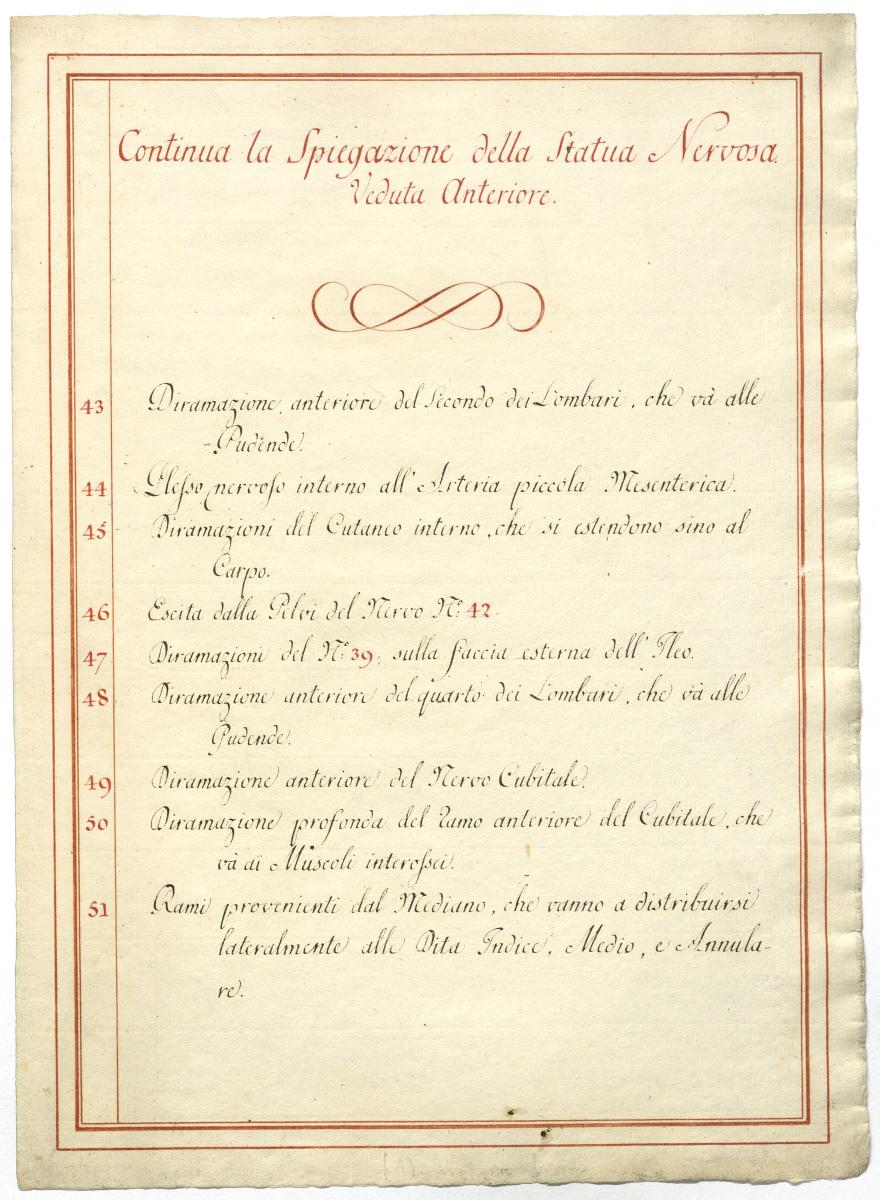 Continua la Spiegazione della Statua Nervosa.
Veduta Anteriore.
43 Diramazione anteriore del Secondo dei Lombari, che và alle
-Pudende.
44 Plesso nervoso interno all'Arteria piccola Mesenterica.
45 Diramazioni del Cutaneo interno, che si estendono sino al
Carpo.
46 Escita dalla Pelvi del Nervo N.º 42.
47 Diramazioni del N.º 39. sulla faccia esterna dell'Ileo.
48 Diramazione anteriore del quarto dei Lombari, che và alle
Pudende.
49 Diramazione anteriore del Nervo Cubitale.
50 Diramazione profonda del Ramo anteriore del Cubitale, che
và ai Muscoli interossei.
51 Rami provenienti dal Mediano, che vanno a distribuirsi
lateralmente alle Dita Indice, Medio, e Annula-
re.